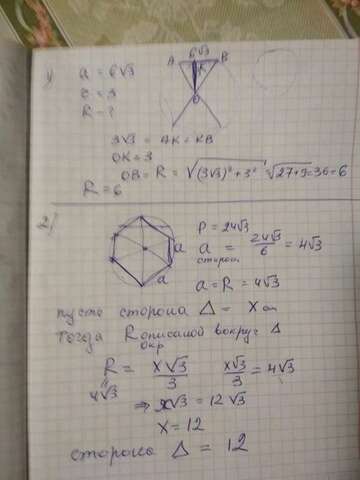 1)
a = 6√3
r = 3
R - ?
6√3
A B
K
O
3√3 = AK = KB
OK = 3
OB = R = √(3√3)² + 3² = √27+9 = 36 = 6
R = 6
2)
P = 24√3
a = 24√3/6 = 4√3
сторон
a
a
a = R = 4√3
пусть сторона Δ = X см
тогда R описаной вокруг Δ
окр
R = X√3/3 X√3/3 = 4√3
4√3
⇒ X√3 = 12√3
X = 12
сторона Δ = 12